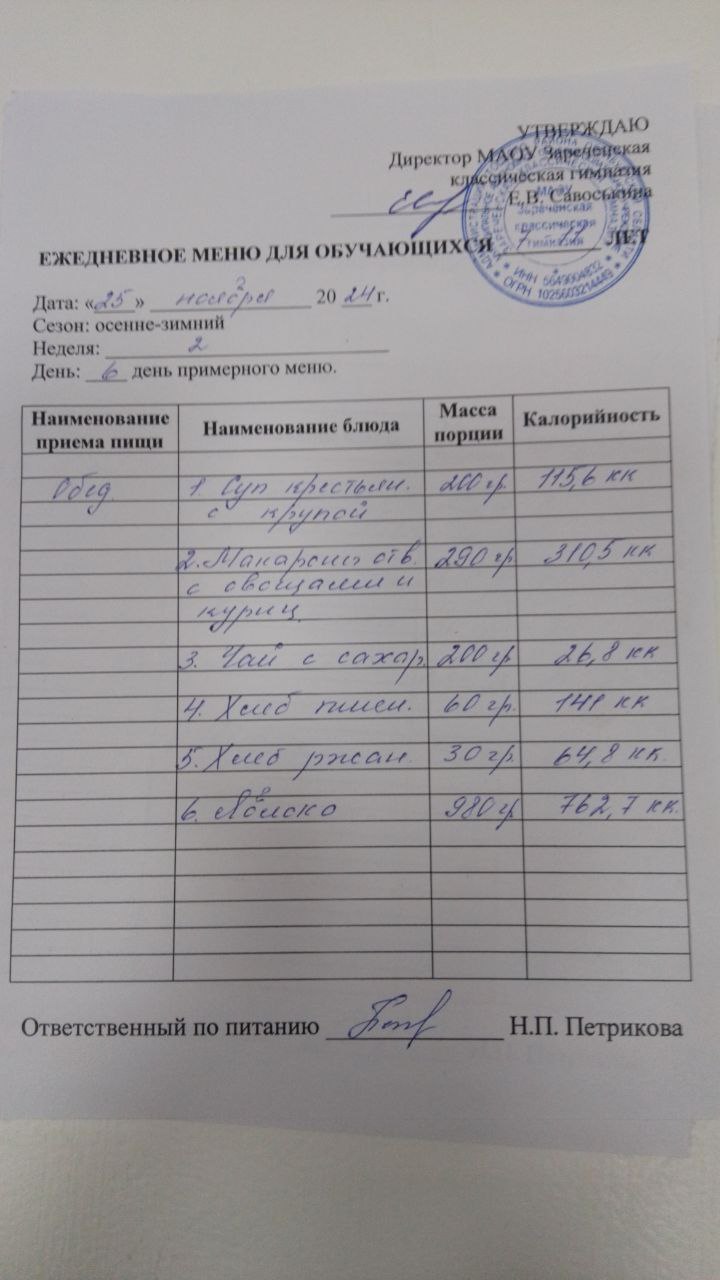 УТВЕРЖДАЮ
Директор МАОУ Зареченская
классическая гимназия
Е.В. Савоськина
МАОУ
Зареченская
классическая
гимназия
ИНН 5649004832
ОГРН 1025603214449
ЕЖЕДНЕВНОЕ МЕНЮ ДЛЯ ОБУЧАЮЩИХСЯ ЛЕТ
Дата: «25» ноября 2024 г.
Сезон: осенне-зимний
Неделя: 2
День: 6 день примерного меню.
Наименование приема пищи Наименование блюда Масса порции Калорийность
Обед 1. Суп крестьян. 200 гр. 115,6 кк
с крупой
2. Макароны отв. 290 гр 310,5 кк
с овощами и
куриц.
3. Чай с сахар. 200 гр 26,8 кк
4. Хлеб пшен. 60 гр. 141 кк
5. Хлеб ржан. 30 гр. 64,8 кк.
6. Яблоко 980 гр 762,7 кк.
Ответственный по питанию Н.П. Петрикова